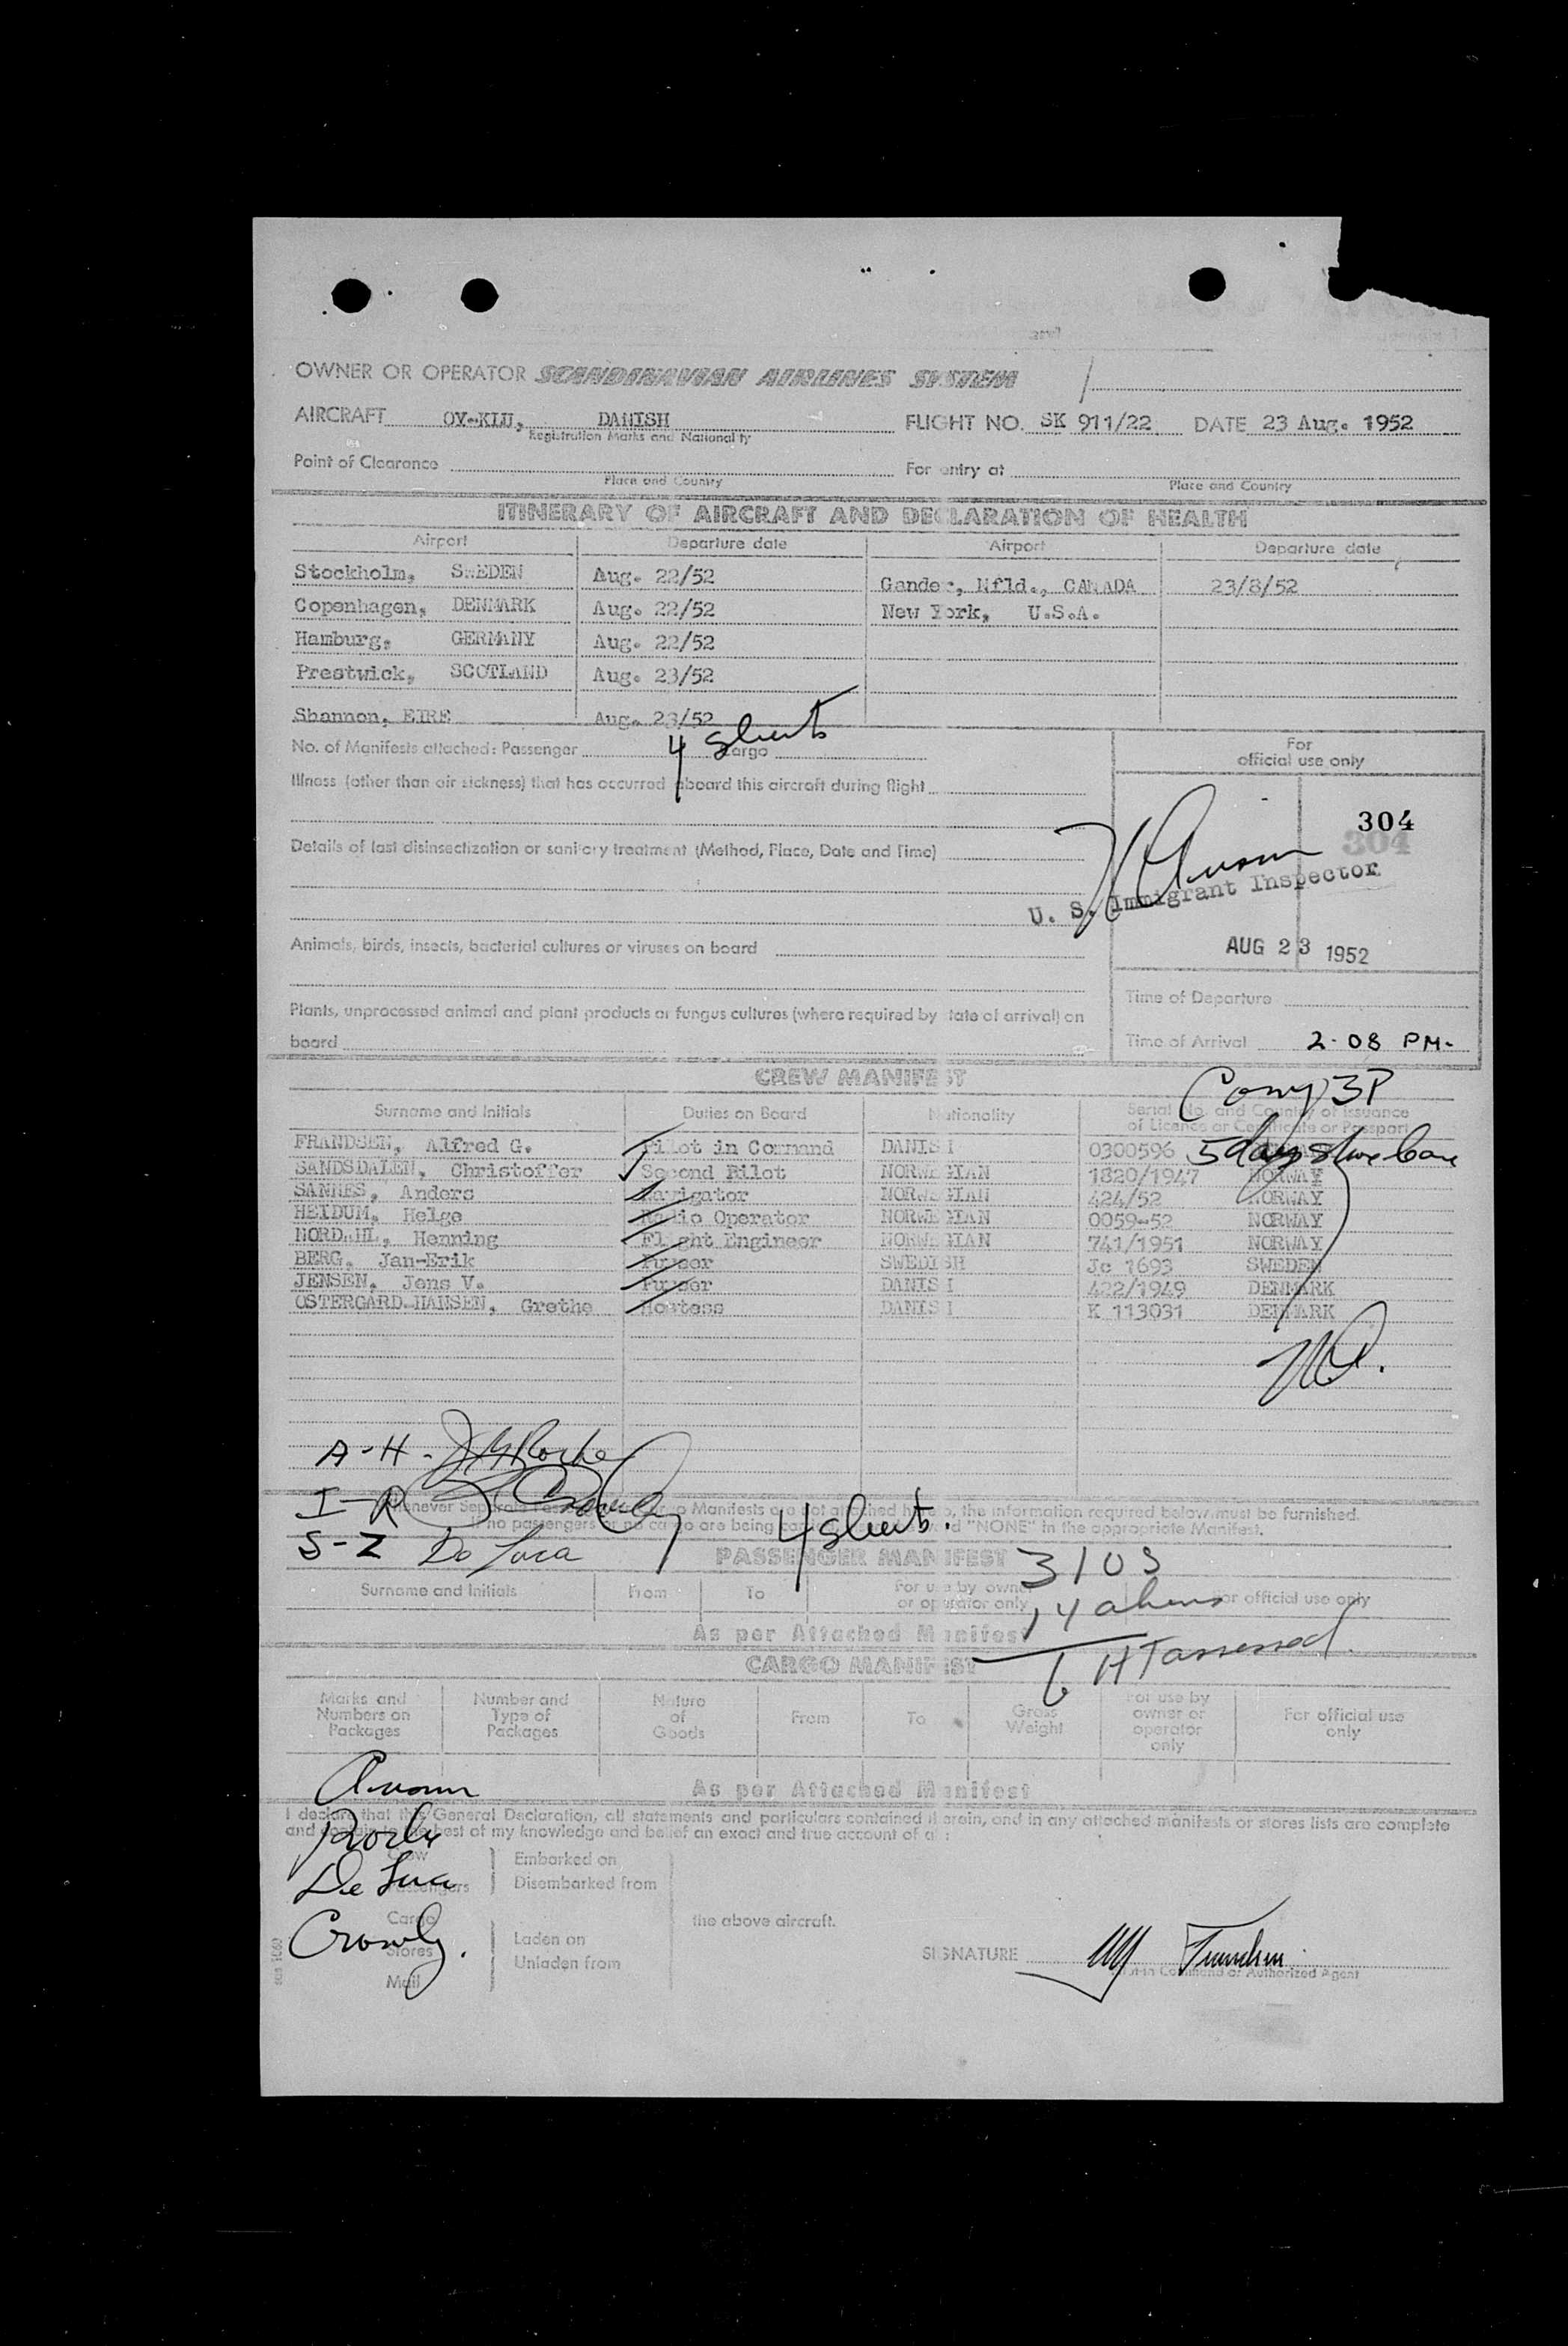 OWNER OR OPERATOR SCANDINAVIAN AIRLINES SYSTEM
AIRCRAFT OY-KLU, DANISH FLIGHT NO. SK 911/22 DATE 23 Aug. 1952
Registration Marks and Nationality
Point of Clearance For entry at
Place and Country Place and Country
ITINERARY OF AIRCRAFT AND DECLARATION OF HEALTH
Airport Departure date Airport Departure date
Stockholm, SWEDEN Aug. 22/52 Gander, Nfld., CANADA 23/8/52
Copenhagen, DENMARK Aug. 22/52 New York, U.S.A.
Hamburg, GERMANY Aug. 22/52
Prestwick, SCOTLAND Aug. 23/52
Shannon, EIRE Aug. 23/52
No. of Manifests attached: Passenger 4 sheets Cargo
For official use only
Illness (other than air sickness) that has occurred aboard this aircraft during flight
304
304
Details of last disinsectization or sanitary treatment (Method, Place, Date and Time)
U. S. Immigrant Inspector
Animals, birds, insects, bacterial cultures or viruses on board
AUG 23 1952
Time of Departure
Plants, unprocessed animal and plant products or fungus cultures (where required by state of arrival) on
board
Time of Arrival 2-08 PM-
CREW MANIFEST
Comp 3P
Surname and Initials Duties on Board Nationality Serial No. and Country of Issuance
of Licence or Certificate or Passport
FRANDSEN, Alfred G. Pilot in Command DANISH 0300596 5 days
SANDSDALEN, Christoffer Second Pilot NORWEGIAN 1820/1947 NORWAY
SANNES, Anders Navigator NORWEGIAN 424/52 NORWAY
HEIDUM, Helge Radio Operator NORWEGIAN 0059-52 NORWAY
NORDAHL, Henning Flight Engineer NORWEGIAN 741/1951 NORWAY
BERG, Jan-Erik Purser SWEDISH Jc 1693 SWEDEN
JENSEN, Jens V. Purser DANISH 422/1949 DENMARK
OSTERGARD-HANSEN, Grethe Hostess DANISH K 113031 DENMARK
A-H- Roche
I-R Crowley
S-Z De Luca
Whenever Separate Passenger or Cargo Manifests are not attached hereto, the information required below must be furnished.
If no passengers or no cargo are being carried "NONE" in the appropriate Manifest.
4 sheets.
PASSENGER MANIFEST
31 US
Surname and Initials From To For use by owner or operator only For official use only
14 aliens
As per Attached Manifest
HT assessed.
CARGO MANIFEST
Marks and Numbers on Packages Number and Type of Packages Nature of Goods From To Gross Weight For use by owner or operator only For official use only
As per Attached Manifest
I declare that this General Declaration, all statements and particulars contained therein, and in any attached manifests or stores lists are complete
and contain to the best of my knowledge and belief an exact and true account of all:
Roche
Crew Embarked on
De Luca
Passengers Disembarked from
Cargo the above aircraft.
Crowley.
Stores Laden on
Mail Unladen from
SIGNATURE
Pilot-in Command or Authorized Agent